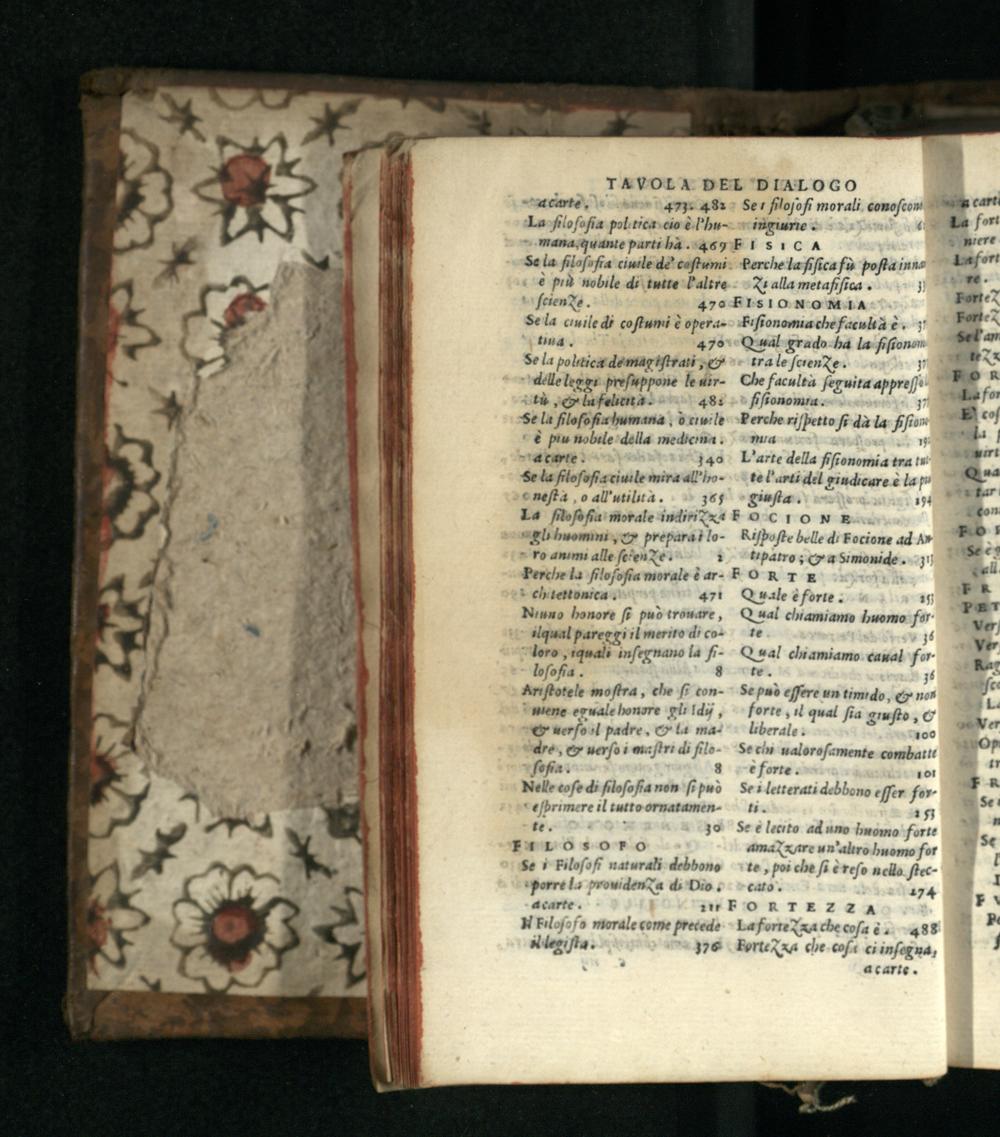 TAVOLA DEL DIALOGO
a carte. 473. 482
La filosofia politica cio è l'hu-
mana, quante parti hà. 469
Se la filosofia ciuile de' costumi
è più nobile di tutte l'altre
scienze. 470
Se la ciuile di costumi è opera-
tiua. 470
Se la politica de magistrati, &
delle leggi presuppone le uir-
tù, & la felicità. 482
Se la filosofia humana, ò ciuile
è piu nobile della medicina.
a carte. 340
Se la filosofia ciuile mira all'ho-
nestà, o all'utilità. 365
La filosofia morale indirizza
gli huomini, & prepara i lo-
ro animi alle scienze. 2
Perche la filosofia morale è ar-
chitettonica. 471
Niuno honore si può trouare,
ilqual pareggi il merito di co-
loro, iquali insegnano la fi-
losofia. 8
Aristotele mostra, che si con-
uiene eguale honore gli Idij,
& uerso il padre, & la ma-
dre, & uerso i mastri di filo-
sofia. 8
Nelle cose di filosofia non si può
esprimere il tutto ornatamen-
te. 30
FILOSOFO
Se i Filosofi naturali debbono
porre la prouidenza di Dio.
a carte. 211
Il Filosofo morale come precede
il legista. 376
Se i filosofi morali conoscon
ingiurie.
FISICA
Perche la fisica fù posta inna
zi alla metafisica.
FISIONOMIA
Fisionomia che facultà è.
Qual grado ha la fisionom
tra le scienze.
Che facultà seguita appress
fisionomia.
Perche rispetto si dà la fision
mia
L'arte della fisionomia tra tut
te l'arti del giudicare è la piu
giusta. 194
FOCIONE
Risposte belle di Focione ad An
tipatro; & a Simonide. 313
FORTE
Quale è forte. 253
Qual chiamiamo huomo for-
te 36
Qual chiamiamo caual for-
te. 36
Se può essere un timido, & non
forte, il qual sia giusto, &
liberale. 100
Se chi ualorosamente combatte
è forte. 101
Se i letterati debbono esser for-
ti. 253
Se è lecito ad uno huomo forte
amazzare un'altro huomo for
te, poi che si è reso nello stec-
cato. 274
FORTEZZA
La fortezza che cosa è. 488
Fortezza che cosa ci insegna,
a carte.
a carte
La fort
niere
La fort
re.
Fortez
Fortez
Se l'am
tezz
FOR
La for
E' cos
la
uirt
Qua
tar
con
FO
Se è
all
FR
PET
Vers
Ver
Rag
Ver
Op
tr
FR
Se
Se